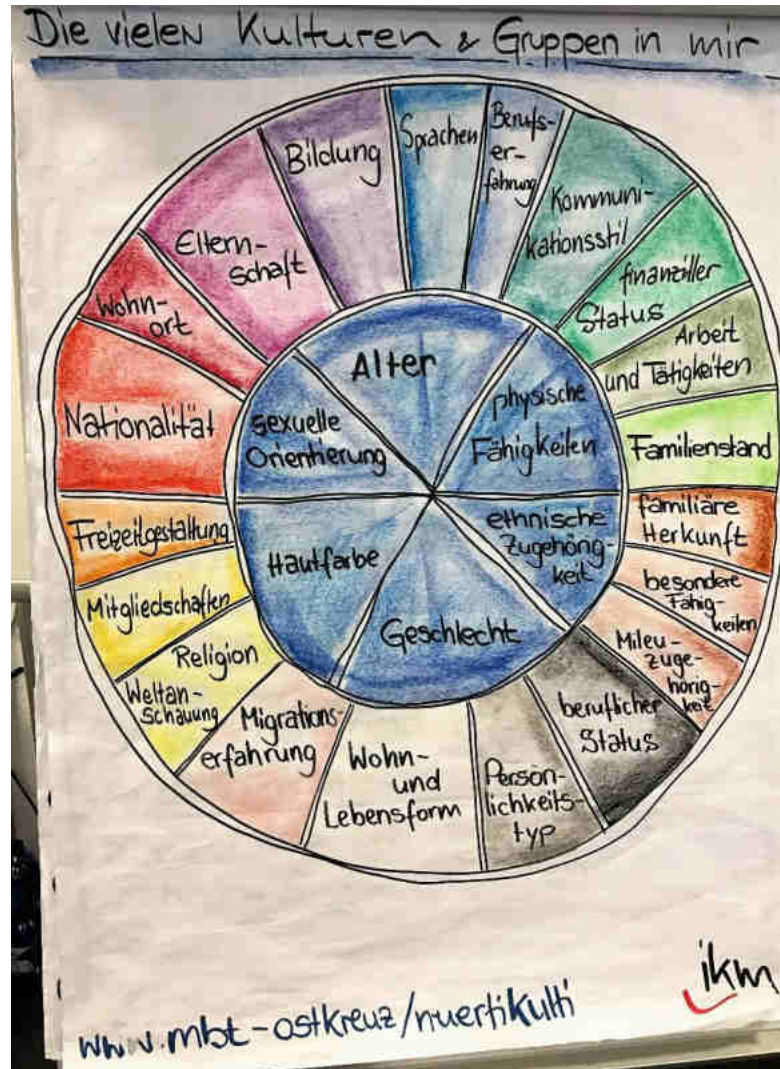 Die vielen Kulturen & Gruppen in mir
Bildung
Sprachen
Berufs-
er-
fahrung
Kommuni-
kationsstil
finanziller
Status
Arbeit
und Tätigkeiten
Familienstand
familiäre
Herkunft
besondere
Fähig-
keiten
Mileu-
zuge-
hörig-
keit
beruflicher
Status
Persön-
lichkeits-
typ
Wohn-
und
Lebensform
Migrations-
erfahrung
Religion
Weltan-
schauung
Mitgliedschaften
Freizeitgestaltung
Nationalität
Wohn-
ort
Eltern-
schaft
Alter
physische
Fähigkeiten
ethnische
Zugehörig-
keit
Geschlecht
Hautfarbe
sexuelle
Orientierung
ikm
www.mbt-ostkreuz/